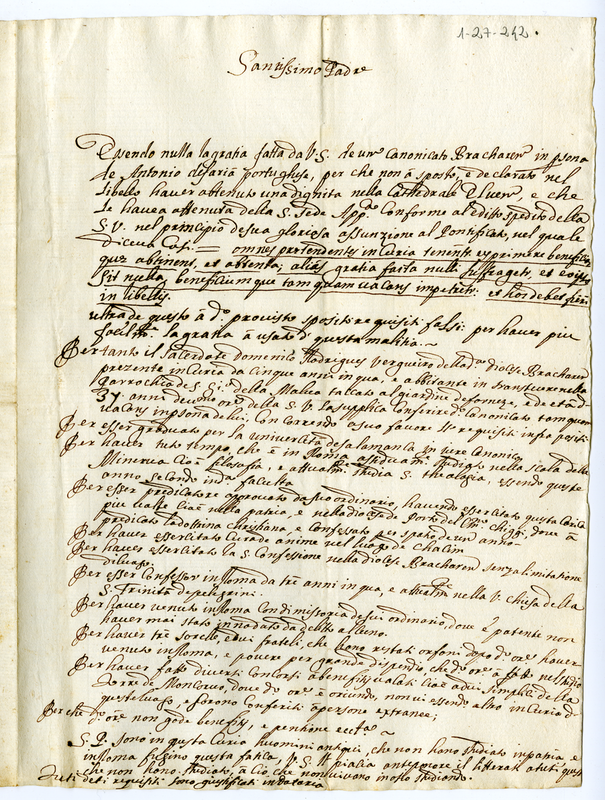 1-27-242.
Santissimo Padre
Essendo nulla la gratia fatta da V. S. de un Canonicato Bracharen in persona
de Antonio de faria portughese, per che non à sposto, e declarato nel
libello haver attenuto una dignita nella Cathedrale Eluen, e che
le havea attenuta della S. Sede App. Conforme al editto spedito della
S. V. nel principio de sua gloriosa assunzione al Pontificato, nel quale
diceva Cosi = omnes pretendentes in Curia tenentr exprimere beneficia
que obtinent, et obtenta, alias gratia facta nulli suffragetr, et
sit nulla, beneficiumque tamquam vacans impetretr: et hoc debet fieri
in libellis.
ultra de questo à do provisto sposti requisiti falsi per haver più
facilte la gratia à usato questa malitia.
Pertanto il sacerdote Domenico Rodrigues Vergueiro della do diocese Bracharen
prezente in Curia da Cinque anni in qua, e abbitante in Transtevere nella
Parrochia de S. Gio: della Malva al giardino de farnese, de età
37 anni devoto ore della S. V. la supplica Conferire do Canonicato tamquam
vacans in psona de lui, Concorrendo a suo favore li requisiti infra positi
Per esser graduato per la universita de salamanca In iure Canonico
Per haver tuto tempo che è in Roma assiduam studiato nella scola della
Minerva Cioè filosofia, e attualm studia S. theologia, essendo queste
anno secondo in da faculta
Per esser predicatore approvato da suo ordinario, havendo essercitato questa Carica
piu volte Cioè nella patria, e nella diocese de Porto del Chiggi, dove à
predicato la dottrina christiana, e Confessato per spatio de un anno
Per haver essercitato Cura de anime nel luogo de Chacim
Per haver essercitato la S. Confessione nella diocese Bracharen senza limitatione
di luogo.
Per esser Confessor in Roma da tre anni in qua, e attualm nella V. Chiesa della
S. Trinità de pelegrini.
Per haver venuto in Roma Con dimissoria de suo ordinario, dove è patente non
haver mai stato penado da delito alleno.
Per haver tre sorelle, e dui fratelli, che sono restati orfani dopo do ore haver
venuto in Roma, e povere per grande dispendio che do ore à fatto nel studio
Per haver fatto diversi Concorsi à benefitij vacati Cioè a dui simplici della
Torre de Moncorvo, dove do ore è oriundo, non vi essendo altro in Curia de
questo luogo, e forono Conferiti à persone extranee;
Per che do ore non gode benefitij, e penzione eccta
S. P. sono in questa Curia huomini antiqui, che non hano studiato in patria, e
in Roma fugino questa fatica, V. S. si pialia anteponere li litterati a tuti questi
che non hano studiato, à Ciò che non vivono in otio studiando.
Tuti deti requisiti sono giustificati in dataria